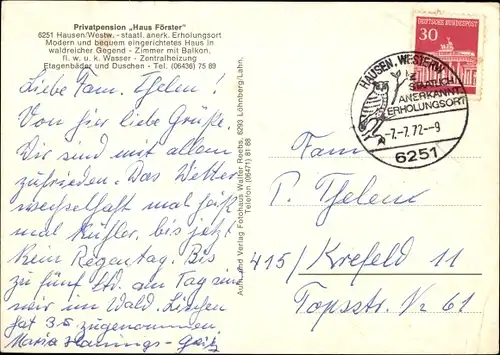 Privatpension „Haus Förster"
6251 Hausen/Westw. - staatl. anerk. Erholungsort
Modern und bequem eingerichtetes Haus in
waldreicher Gegend - Zimmer mit Balkon,
fl. w. u. k. Wasser - Zentralheizung
Etagenbäder und Duschen - Tel. (06436) 75 69
Liebe Fam. Thelen!
Von hier liebe Grüße.
Wir sind mit allem
zufrieden. Das Wetter
wechselhaft mal heiß
mal kühler, bis jetzt
kein Regentag. Bis
zu fünf Std. am Tag sind
wir im Wald. Lieschen
hat 3 zugenommen.
Maria
Aufn. und Verlag Fotohaus Walter Reebs, 6293 Löhnberg/Lahn,
Telefon (06471) 81 68
DEUTSCHE BUNDESPOST
30
HAUSEN, WESTERW
STAATLICH
ANERKANNT.
ERHOLUNGSORT
-7.-7.72.-9
6251
Fam
P. Thelen
415/ Krefeld 11
Topsstr. Nr 61